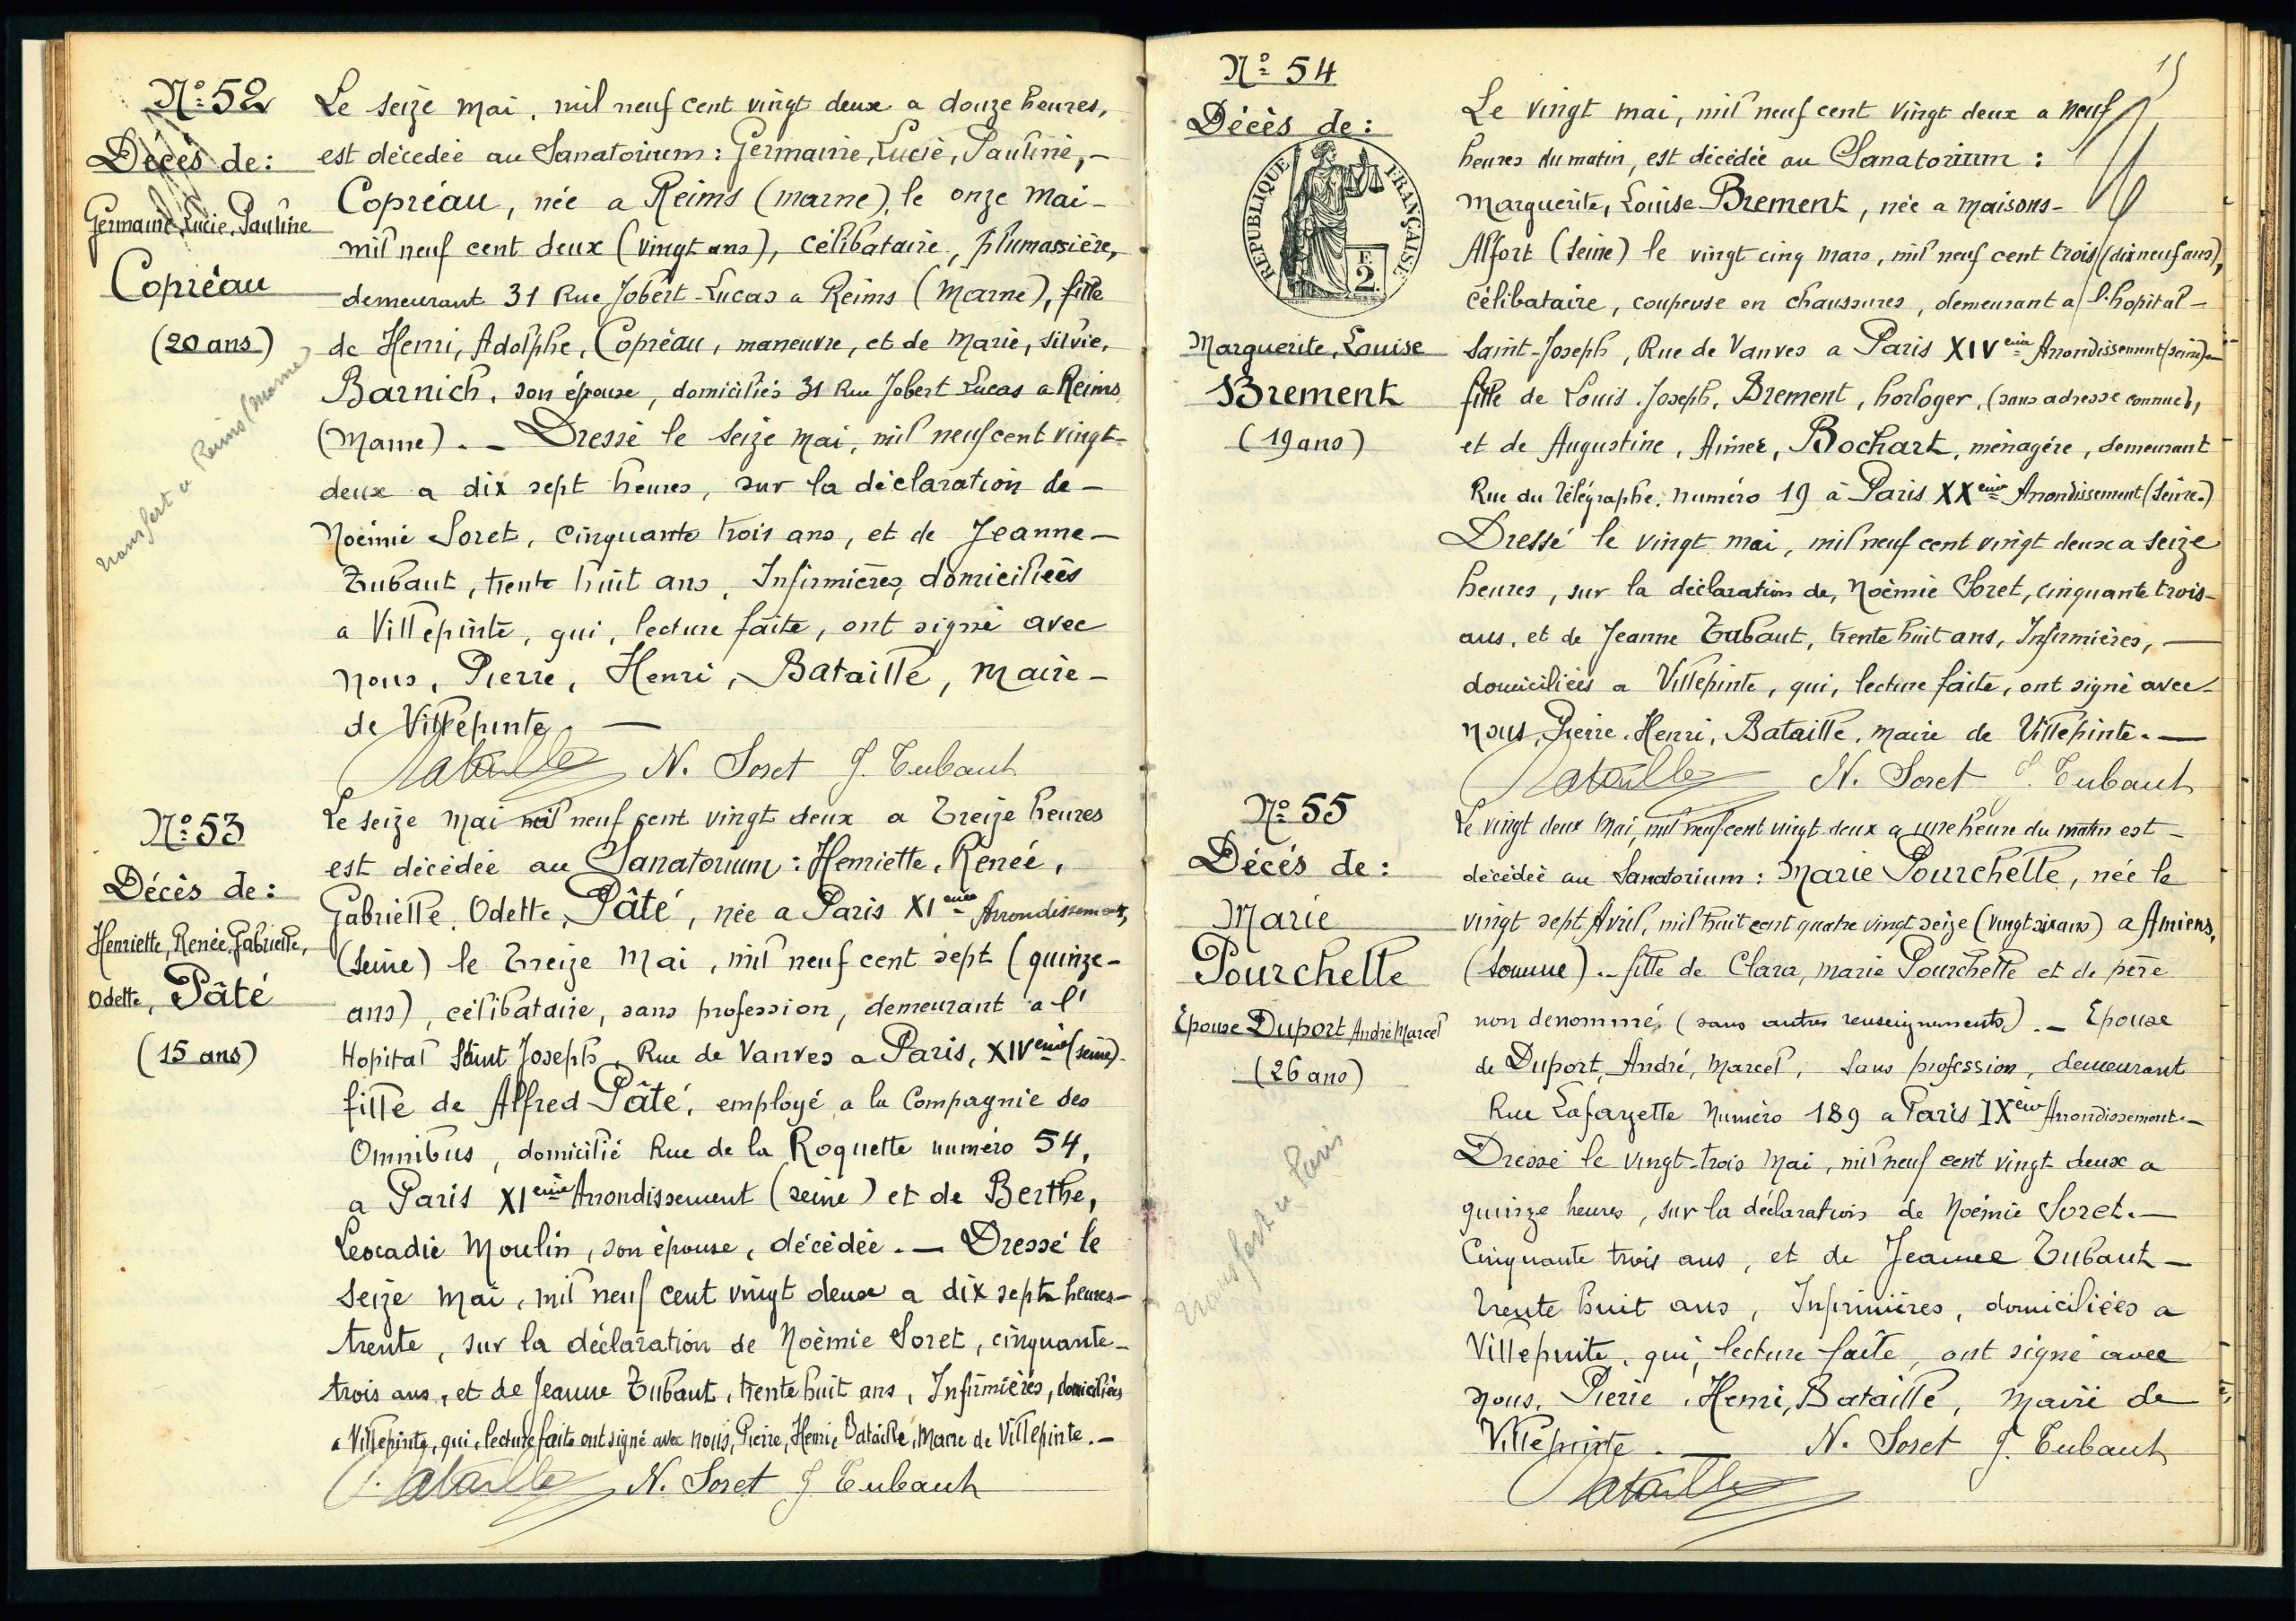 N° 52
Décès de:
Germaine, Lucie, Pauline
Copréau
(20 ans)
transfert a Reims (Marne)
Le seize mai, mil neuf cent vingt deux a douze heures,
est décédée au Sanatorium: Germaine, Lucie, Pauline,-
Copréau, née a Reims (marne), le onze mai-
mil neuf cent deux (vingt ans), célibataire, plumassière,
demeurant 31 Rue Jobert-Lucas a Reims (Marne), fille
de Henri, Adolphe, Copréau, maneuvre, et de Marie, Silvie,
Barnich, son épouse, domiciliés 31 Rue Jobert Lucas a Reims
(Marne).- Dressé le seize mai, mil neuf cent vingt-
deux a dix sept heures, sur la déclaration de-
Noémie Soret, cinquante trois ans, et de Jeanne-
Tubaut, trente huit ans, Infirmières, domiciliées
a Villepinte, qui, lecture faite, ont signé avec
nous, Pierre, Henri, Bataille, Maire-
de Villepinte. —
Bataille N. Soret J. Tubaut
N° 53
Décès de:
Henriette, Renée, Gabrielle,
Odette, Pâté
(15 ans)
Le seize mai mil neuf cent vingt deux a treize heures
est décédée au Sanatorium: Henriette, Renée,
Gabrielle, Odette, Pâté, née a Paris XIème Arrondissement,
(Seine) le treize mai, mil neuf cent sept (quinze-
ans), célibataire, sans profession, demeurant a l'
Hopital Saint Joseph, Rue de Vanves a Paris, XIVème (seine).
fille de Alfred Pâté, employé a la Compagnie des
Omnibus, domicilié Rue de la Roquette numéro 54,
a Paris XIème Arrondissement (seine) et de Berthe,
Leocadie Moulin, son épouse, décédée.— Dressé le
seize mai, mil neuf cent vingt deux a dix sept heures-
trente, sur la déclaration de Noémie Soret, cinquante-
trois ans, et de Jeanne Tubaut, trente huit ans, Infirmières, domiciliées
a Villepinte, qui, lecture faite ont signé avec nous, Pierre, Henri, Bataille, Maire de Villepinte.-
Bataille N. Soret J Tubaut
N° 54
Décès de:
REPUBLIQUE FRANÇAISE
F.
2.
Marguerite, Louise
Brement
(19 ans)
Le vingt mai, mil neuf cent vingt deux a neuf
heures du matin, est décédée au Sanatorium:
Marguerite, Louise Brement, née a Maisons-
Alfort (Seine) le vingt cinq mars, mil neuf cent trois (dix neuf ans),
célibataire, coupeuse en chaussures, demeurant a l'hopital-
Saint-Joseph, Rue de Vanves a Paris XIVème Arrondissement (seine)-
fille de Louis, Joseph, Brement, horloger, (sans adresse connue),
et de Augustine, Aimée, Bochart, ménagère, demeurant
Rue du Télégraphe, numéro 19 à Paris XXème Arrondissement (Seine.)
Dressé le vingt mai, mil neuf cent vingt deux a seize
heures, sur la déclaration de, Noémie Soret, cinquante trois-
ans, et de Jeanne Tubaut, trente huit ans, Infirmières, —
domiciliées a Villepinte, qui, lecture faite, ont signé avec-
nous, Pierre, Henri, Bataille, maire de Villepinte.—
Bataille N. Soret J. Tubaut
N° 55
Décés de:
Marie
Pourchelle
Epouse Duport André Marcel
(26 ans)
transfert a Paris
Le vingt deux mai, mil neuf cent vingt deux a une heure du matin est-
décédée au Sanatorium: Marie Pourchelle, née le
vingt sept Avril, mil huit cent quatre vingt seize (vingt six ans) a Amiens,
(Somme).- fille de Clara, marie Pourchelle et de père
non denommé, (sans autres renseignements).- Epouse
de Duport, André, Marcel, sans profession, demeurant
Rue Lafayette Numéro 189 a Paris IXème Arrondissement.-
Dressé le vingt-trois mai, mil neuf cent vingt deux a
quinze heures, sur la déclaration de Noémie Soret.—
Cinquante trois ans, et de Jeanne Tubaut-
trente huit ans, Infirmières, domiciliées a
Villepinte, qui, lecture faite, ont signé avec
nous, Pierre, Henri, Bataille, Maire de
Villepinte.— N. Soret J. Tubaut
Bataille